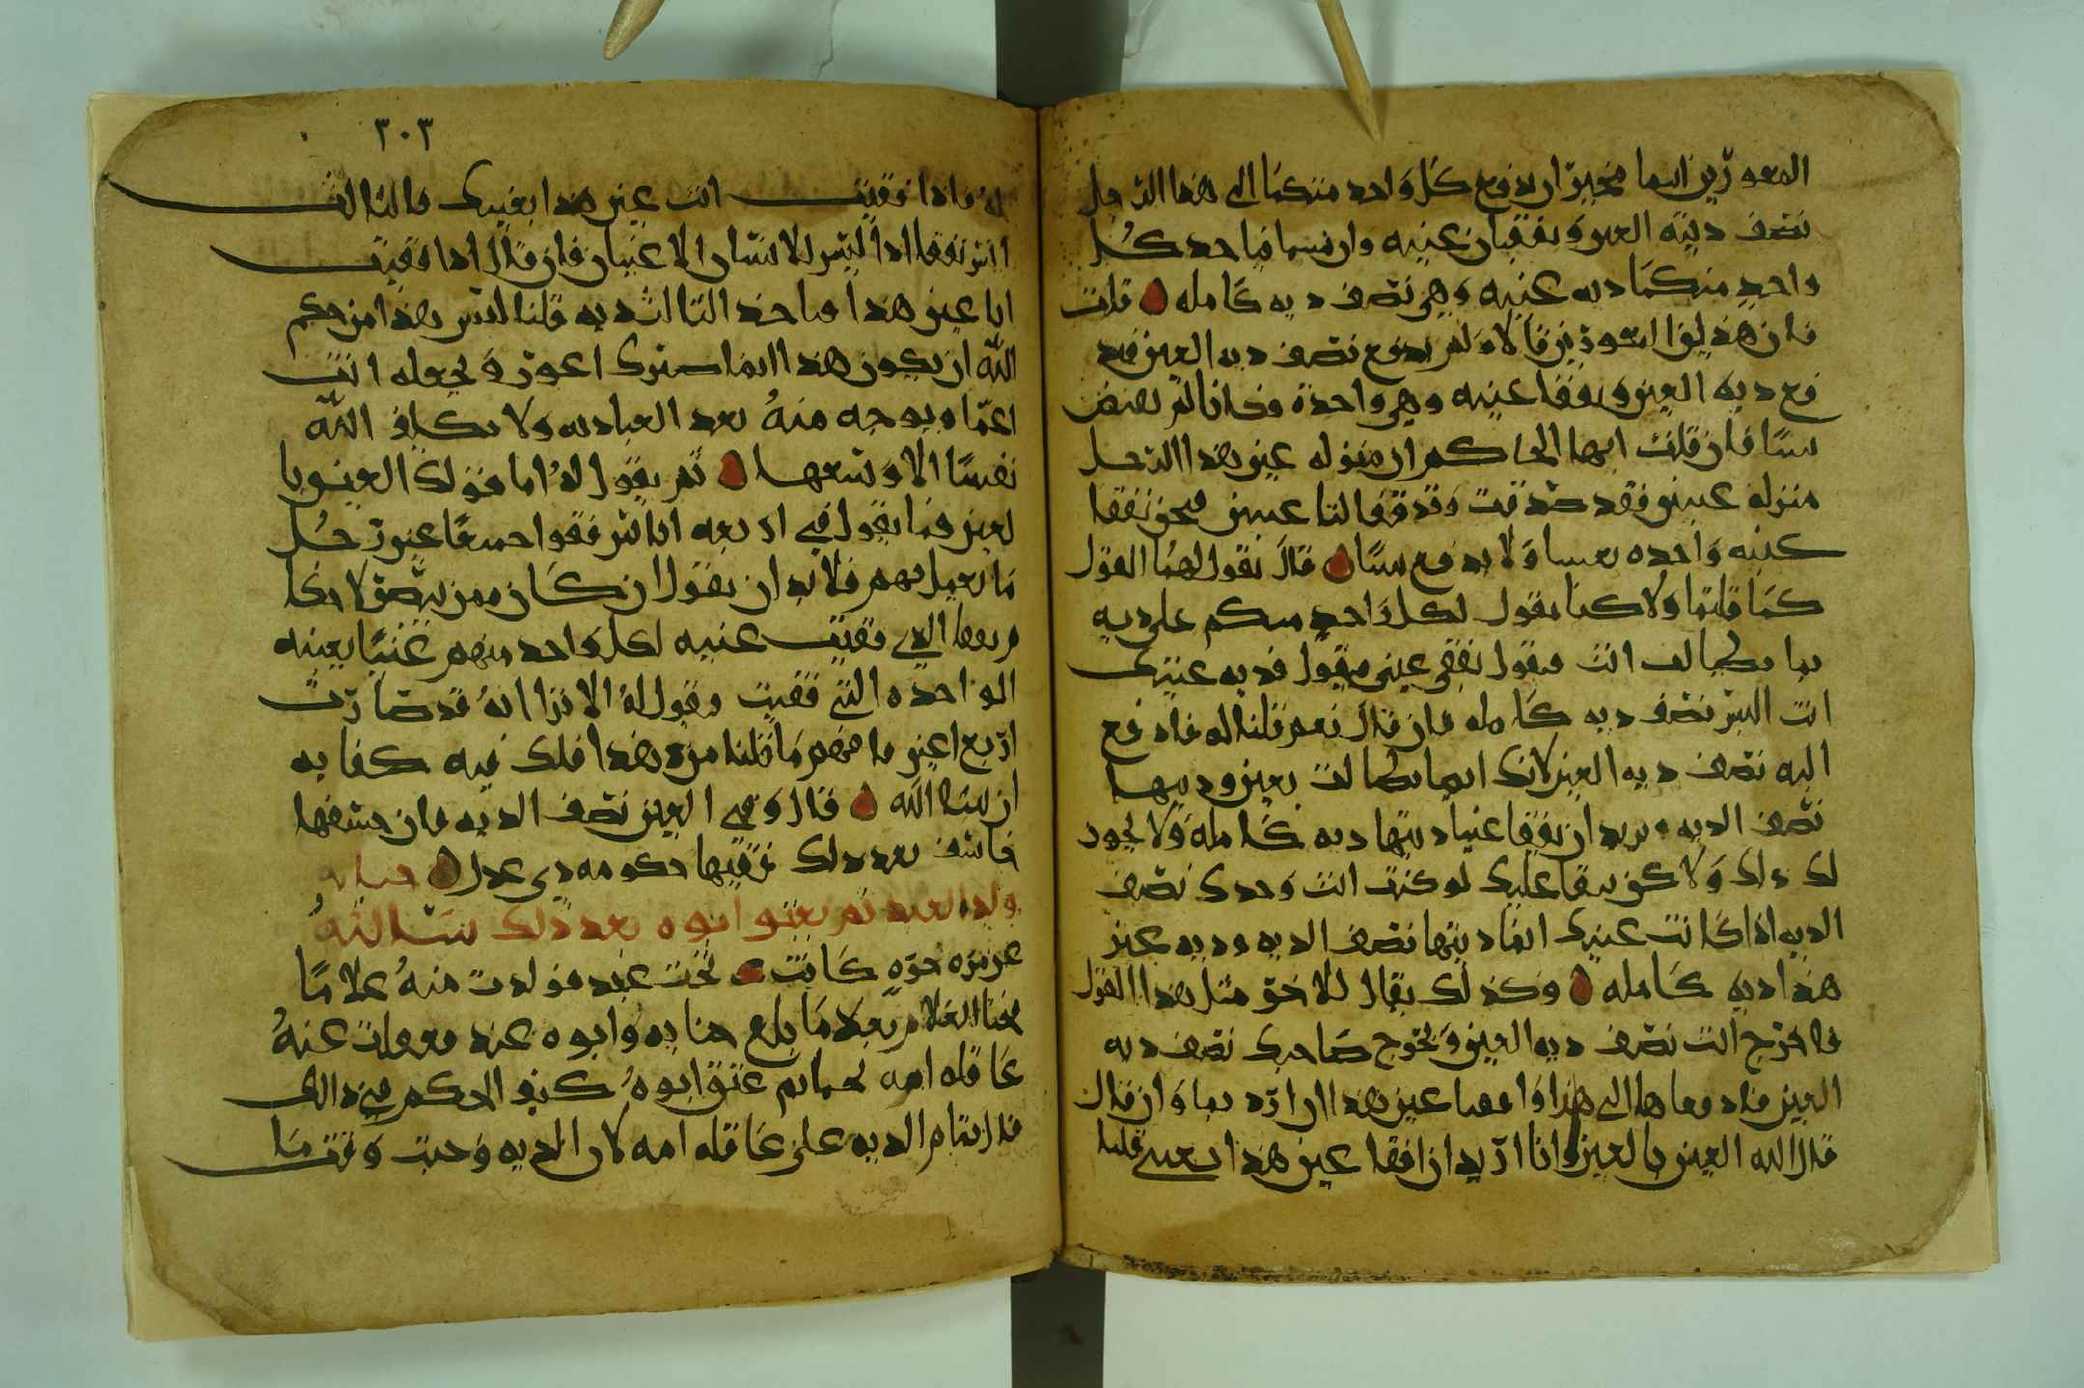 المعورين انتما مخيرين ان يدفع كل واحد منكما الى هذا الرجل
نصف دية العين وتفقيان عينيه وان شيتما فياخد كل
واحد منكما دية عينيه وهي نصف ديه كامله قلت
فان هذين الاعورين قالا لم يدفع نصف دية العين
دية العين ونفقا عينه وهي واحدة
شيا فان قلت ايها الحاكم ان منزله عين هذا الرجل
منزله عينين فقد صدقت وقد فقا لنا عينين فنحن نفقا
عينه واحده بعينينا ولا يدفع شيا قال نقول لهما القول
كما قلتما ولاكنا نقول لكل واحد منكم على ديه
بما يطالب انت فيقول يفقى عيني فيقول فديه عينك
انت اليس نصف ديه كامله فان قال نعم قلنا له فادفع
اليه نصف ديه العين لانك انما تطالب بعين وديتها
نصف الديه وتريد ان تفقا عينا ديتها ديه كامله ولا يجوز
لك ذلك ولاكن يبقا عليك لو كنت انت وحدك نصف
الديه اذا كانت عينك انما ديتها نصف الديه وديه عين
هذا ديه كامله وكذلك يقال للاخر مثل هذا القول
فاخرج انت نصف ديه العين ويخرج صاحبك نصف ديه
العين فادفعاها الى هذا وافقيا عين هذا ان اردتما وان قال
قال الله العين بالعين وانا اريد ان افقا عين هذا بعيني قلنا
٣٠٣
له فاذا فقيت انت عين هذا بعينك فالثالث
ايش يفقا اذا ليس للانسان الا عينان فان قال اذا فقيت
انا عين هذا فياخذ الثالث ديه قلنا ليس هذا من حكم
الله ان يكون هذا انما صيرك اعور ويجعله انت
اعما ويوخذ منه بعد العما ديه ولا يكلف الله
نفسا الا وسعها ثم يقول له اما قولك العين با
لعين فما يقول في اربعه اناس فقوا جميعا عين رجل
ما يعمل بهم فلا بد ان يقول ان كان ممن ينصف لا
الذي فقيت عينه لكل واحد منهم عينا بعينه
الواحده التي فقيت ونقول له الا ترا انه قد صارت
اربع اعين فافهم ما قلنا من هذا فلك فيه كفايه
ان شا الله قال وفي العين نصف الديه فان خسفها
خاسف بعد ذلك ففيها حكومه ذي عدل جنايه
ولد العبد ثم يعتق ابوه بعد ذلك يسالته
عن مره حره كانت تحت عبد فولدت منه غلاما
فجنا الغلام بعد ما بلغ جنايه وابوه عبد فعقلت عنه
عاقله امه ثم عتق ابوه كيف الحكم في ذالك
قال تمام الديه على عاقله امه لان الديه وجبت وقت ما